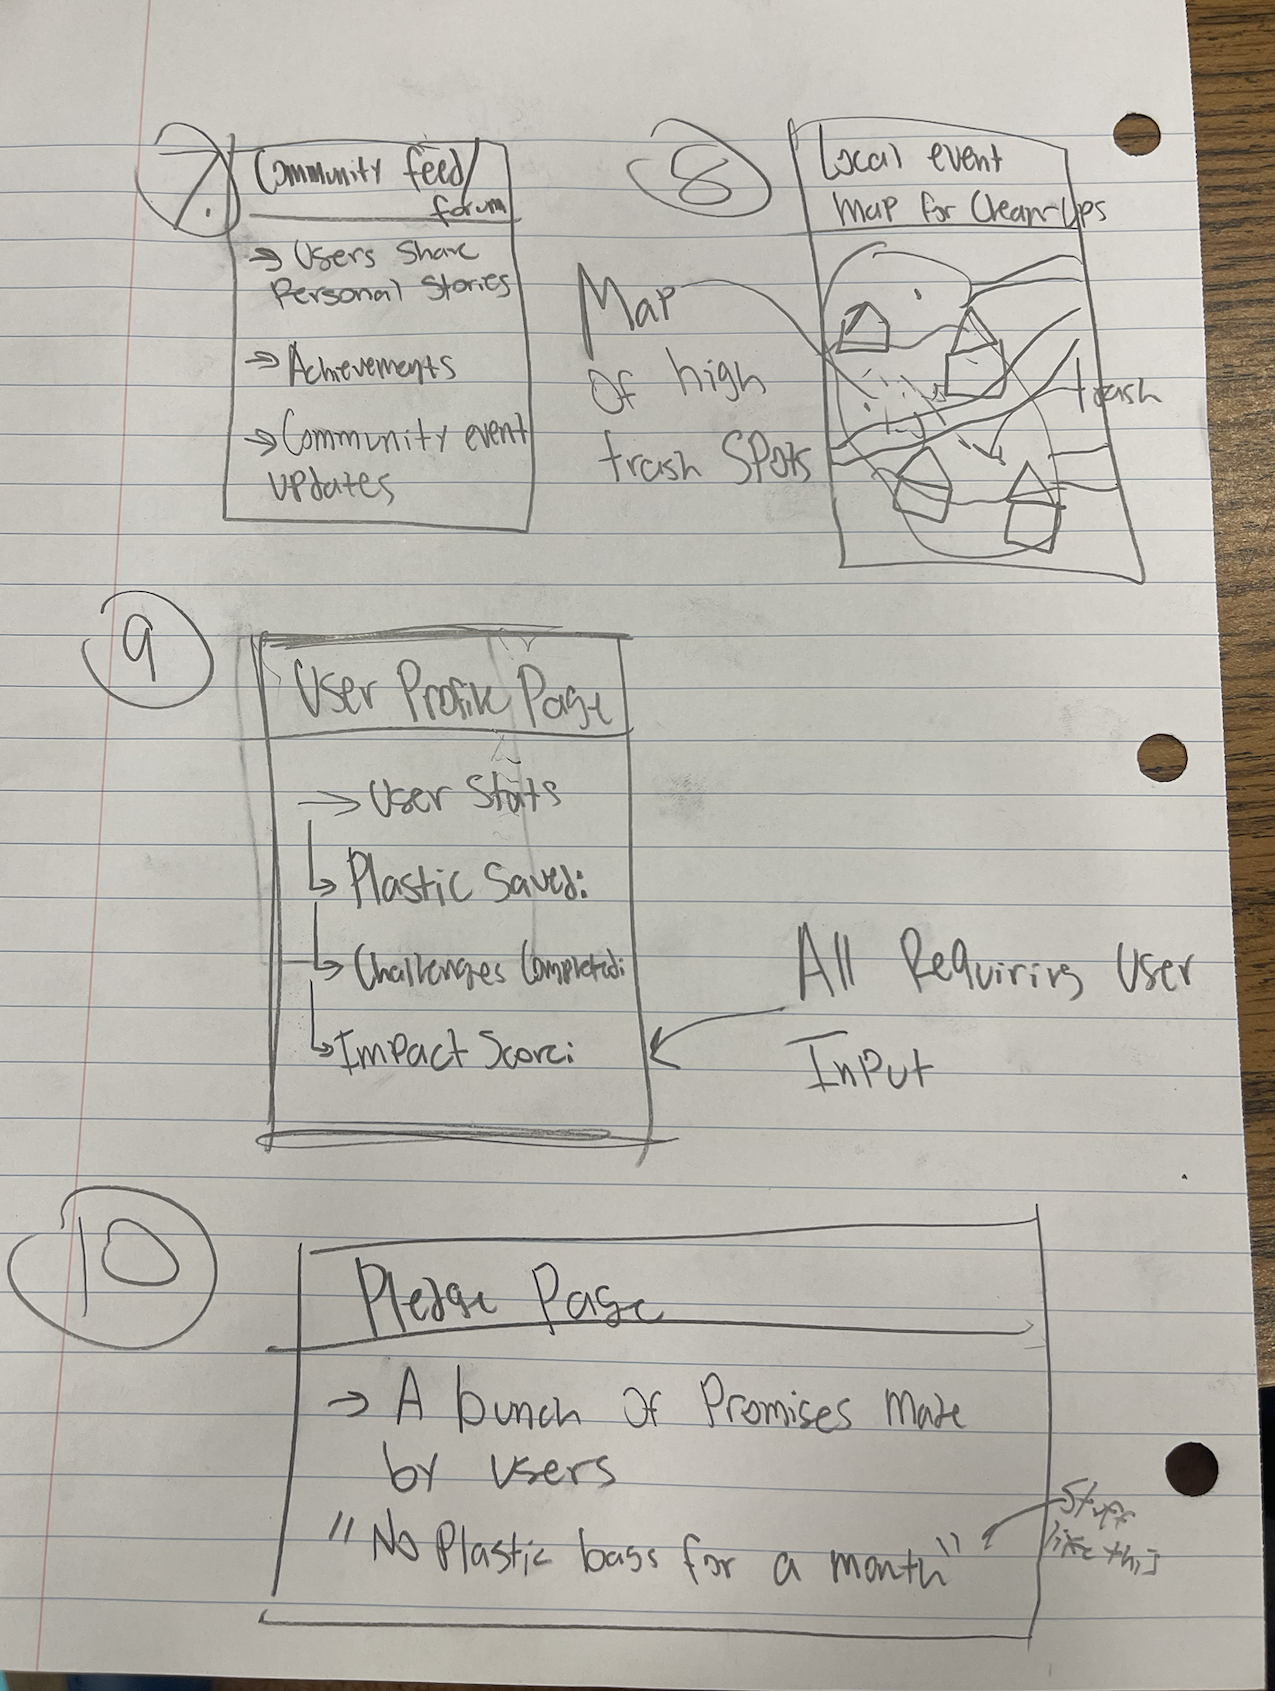 7.
Community feed/
forum
→ Users Share
Personal Stories
→ Achievements
→ Community event
updates
8
Local event
Map for Clean-Ups
Map
Of high
trash Spots
trash
9
User Profile Page
→ User Stats
↳ Plastic Saved:
↳ Challenges Completed:
↳ Impact Score:
All Requiring User
Input
10
Pledge Page
→ A bunch Of Promises Made
by users
"No Plastic bags for a month"
Stuff
like this